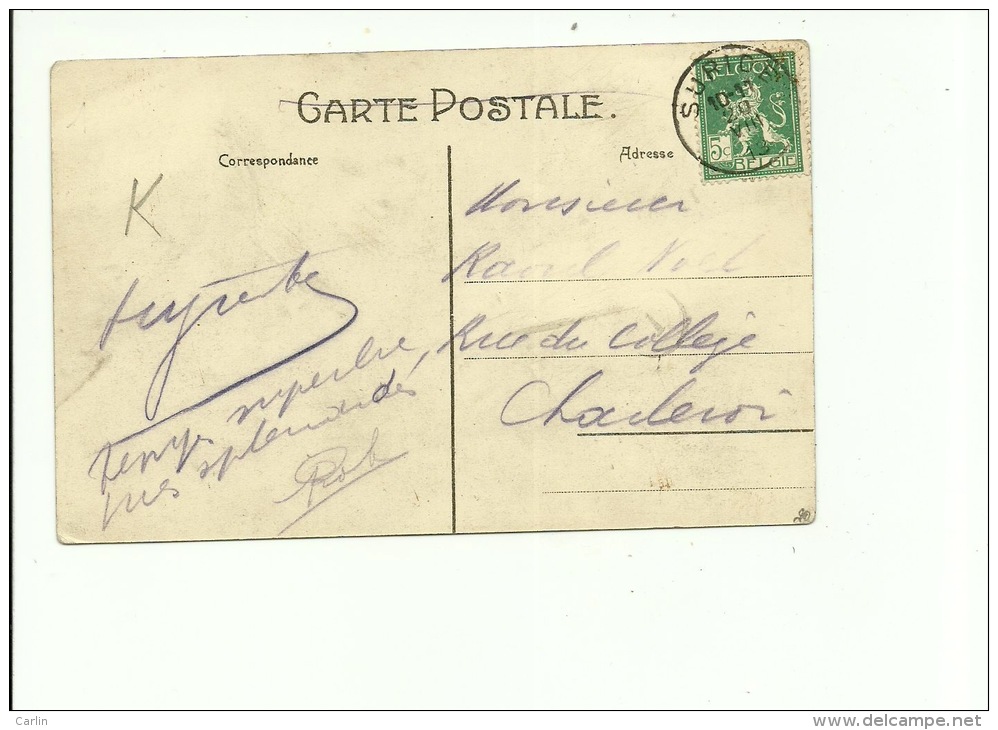 CARTE POSTALE.
Correspondance
Adresse
SURICE
10-11
VIII
13
BELGIQUE
5c
BELGIE
K
Monsieur
Raoul Noël
Rue du Collège
Charleroi
Temps superbe,
vues splendides
Rob
Carlin
www.delcampe.net